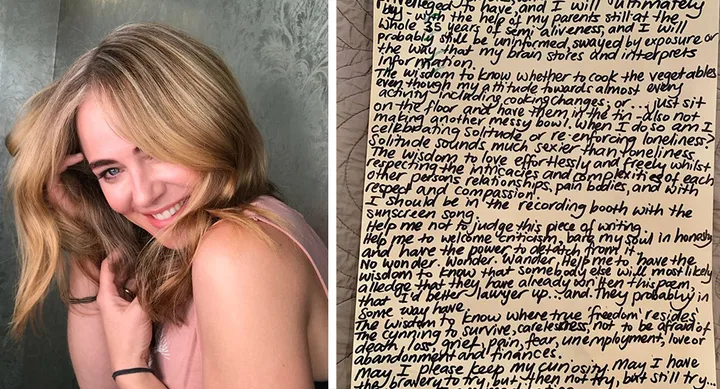 privelleged to have, and I will ultimately
by - with the help of my parents still at the
whole 35 years of semi aliveness, and I will
probably still be uninformed, swayed by exposure or
the way that my brain stores and interprets
information.
The wisdom to know whether to cook the vegetables
even though my attitude towards almost every
activity including cooking changes, or... just sit
on the floor and have them in the tin - also not
making another messy bowl. When I do so am I
celebrating solitude, or re-enforcing loneliness?
Solitude sounds much sexier than loneliness.
The wisdom to love effortlessly and freely whilst
respecting the intricacies and complexities of each
other persons relationships, pain bodies, and with
respect and compassion.
I should be in the recording booth with the
sunscreen song.
Help me not to judge this piece of writing.
Help me to welcome criticism, bare my soul in honesty
and have the power to detatch from it.
No wonder. Wonder. Wander, Help me to have the
wisdom to know that somebody else will most likely
alledge that they have already written this poem,
that I'd better lawyer up... and. they probably in
some way have.
The wisdom to know where true freedom resides
The cunning to survive, carelessness, not to be afraid of
death, loss, grief, pain, fear, unemployment, love or
abandonment and finances.
May I please keep my curiosity. May I have
the bravery to try, but, then not try, but still try...